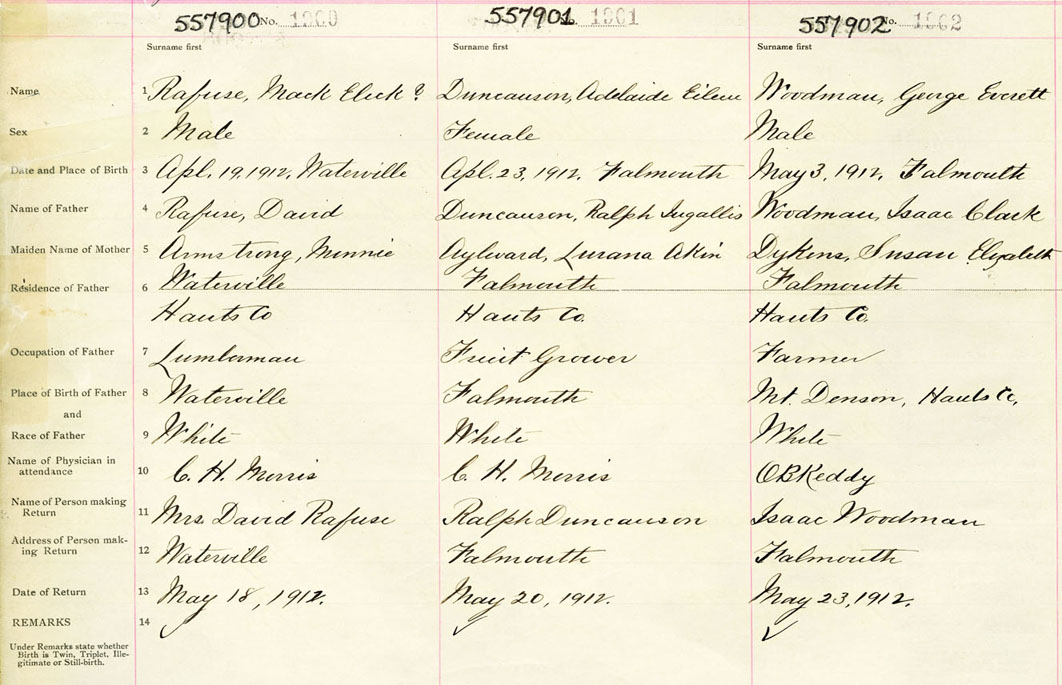 557900 No. 1900 557901 No. 1901 557902 No. 1902
Surname first Surname first Surname first
Name 1 Rafuse, Mack Elick ? Duncanson, Adelaide Eileen Woodman, George Everett
Sex 2 Male Female Male
Date and Place of Birth 3 Apl. 19, 1912. Waterville Apl. 23, 1912. Falmouth May 3, 1912. Falmouth
Name of Father 4 Rafuse, David Duncanson, Ralph Ingallis Woodman, Isaac Clark
Maiden Name of Mother 5 Armstrong, Minnie Aylward, Lurana Akin Dykens, Susan Elizabeth
Residence of Father 6 Waterville Falmouth Falmouth
Hants Co Hants Co. Hants Co.
Occupation of Father 7 Lumberman Fruit Grower Farmer
Place of Birth of Father 8 Waterville Falmouth Mt. Denson, Hants Co.
and
Race of Father 9 White White White
Name of Physician in
attendance 10 C. H. Morris C. H. Morris O B Keddy
Name of Person making
Return 11 Mrs. David Rafuse Ralph Duncanson Isaac Woodman
Address of Person mak-
ing Return 12 Waterville Falmouth Falmouth
Date of Return 13 May 18, 1912. May 20, 1912. May 23, 1912.
REMARKS 14 ✓ ✓ ✓
Under Remarks state whether
Birth is Twin, Triplet, Ille-
gitimate or Still-birth.